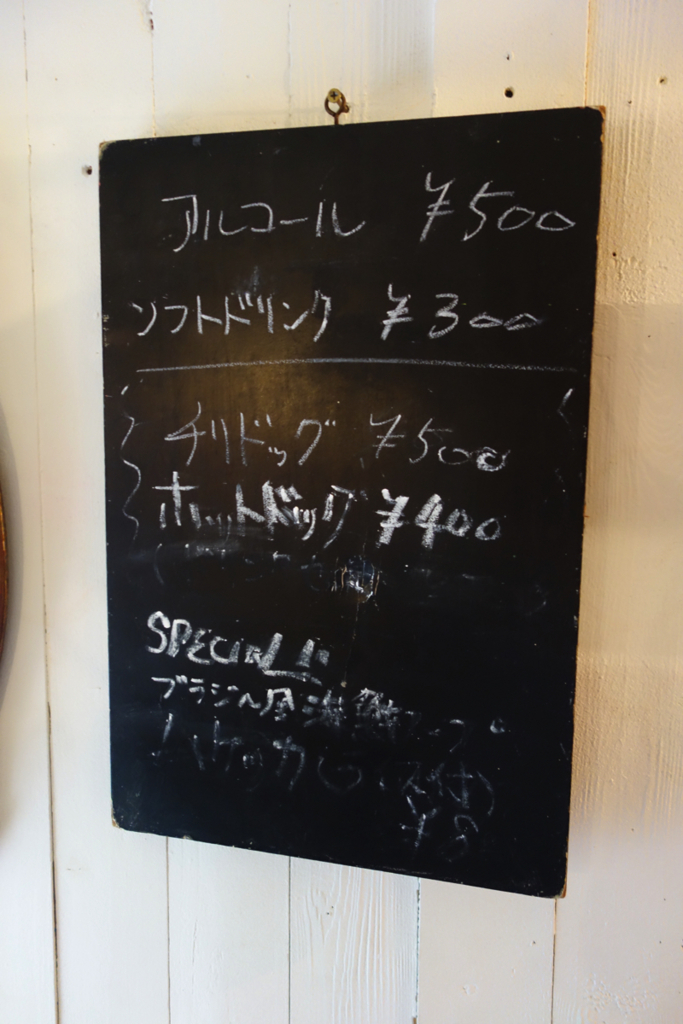 アルコール ¥500
ソフトドリンク ¥300
チリドッグ ¥500
ホットドッグ ¥400
SPECIAL!!
ブラジル風海鮮スープ
ムケッカ
¥8